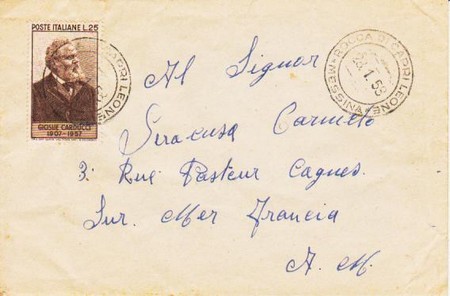 POSTE ITALIANE L.25
GIOSUE CARDUCCI
1907-1957
ROCCA DI CAPRI LEONE
MESSINA
.1.58
Al Signor
Siracusa Carmelo
3: Rue Pasteur Cagnes.
Sur. Mer Francia
A. M.